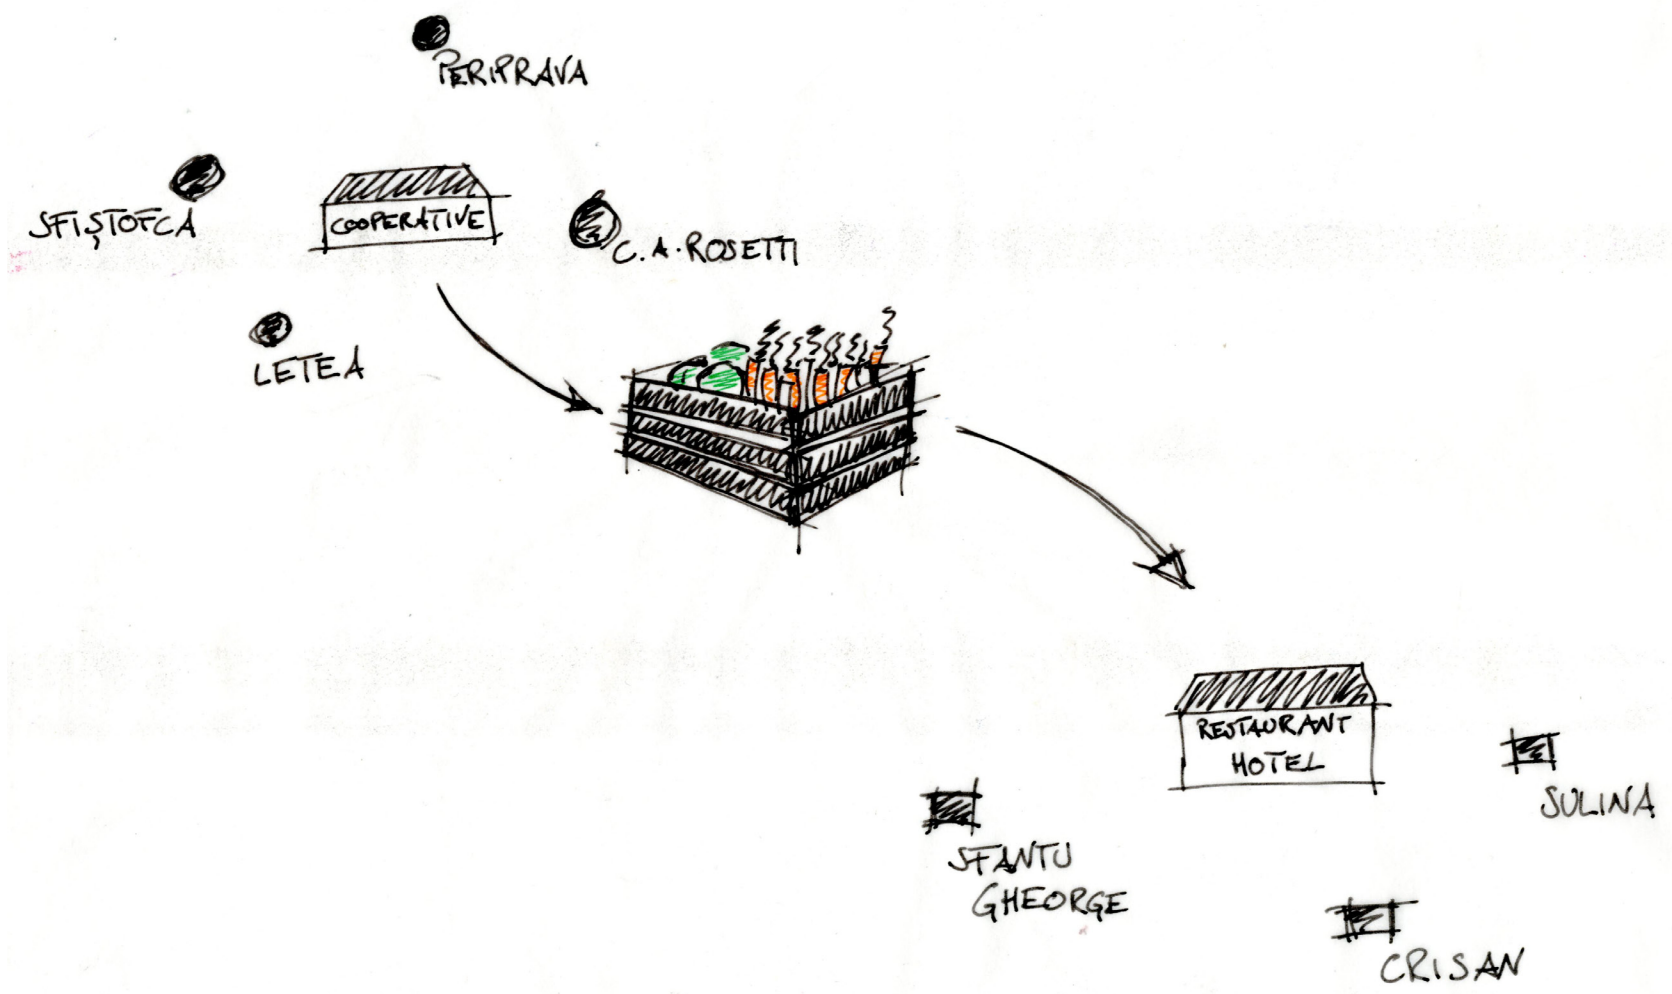 PERIPRAVA
SFIȘTOFCA
COOPERATIVE
C.A. ROSETTI
LETEA
RESTAURANT
HOTEL
SULINA
SFANTU
GHEORGE
CRISAN